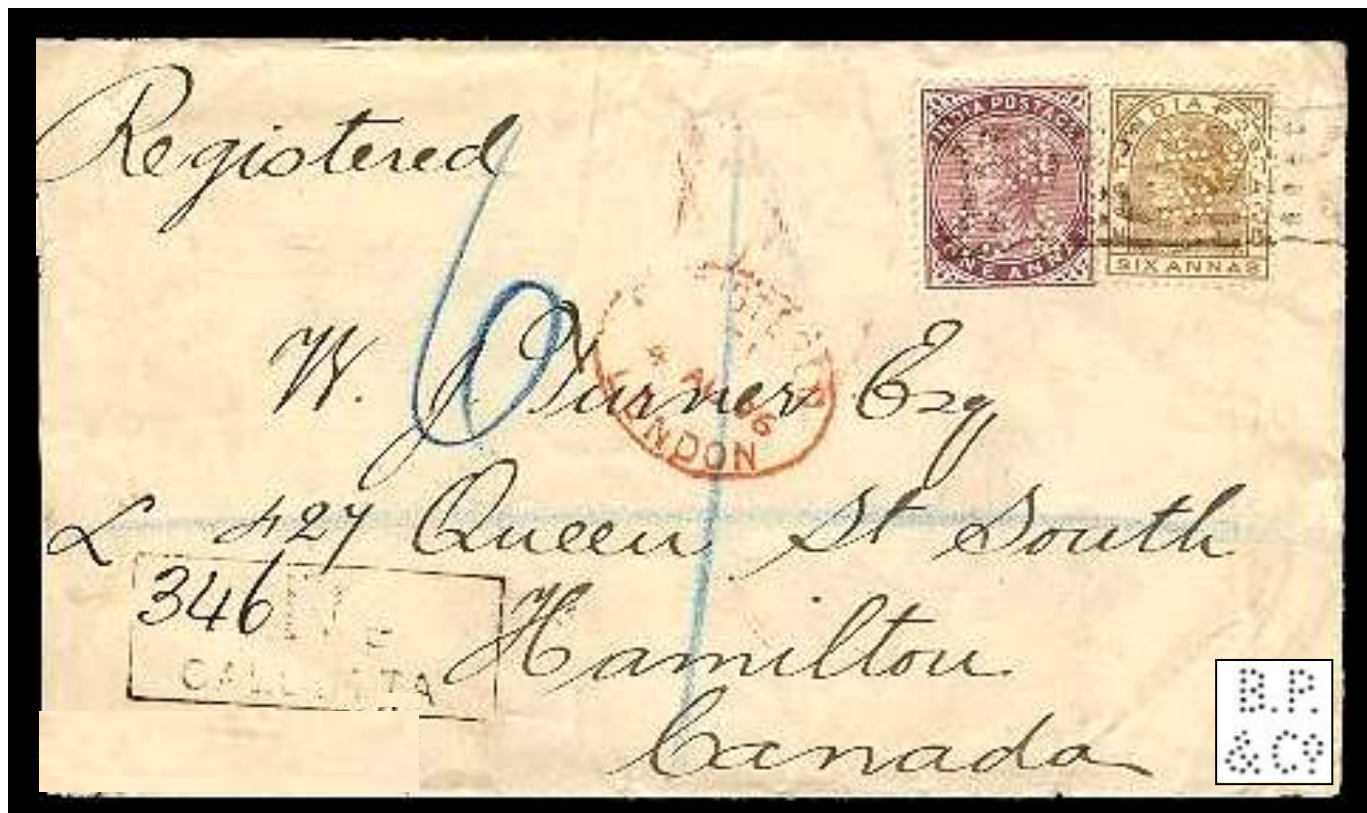 Registered
INDIA POSTAGE
ONE ANNA
SIX ANNAS
6
W. J. Turner Esq
LONDON
427 Queen St South
346
CALCUTTA
Hamilton
Canada
B.P.
& Co